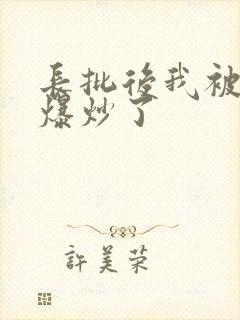 長批後我被
爆炒了
許美荣